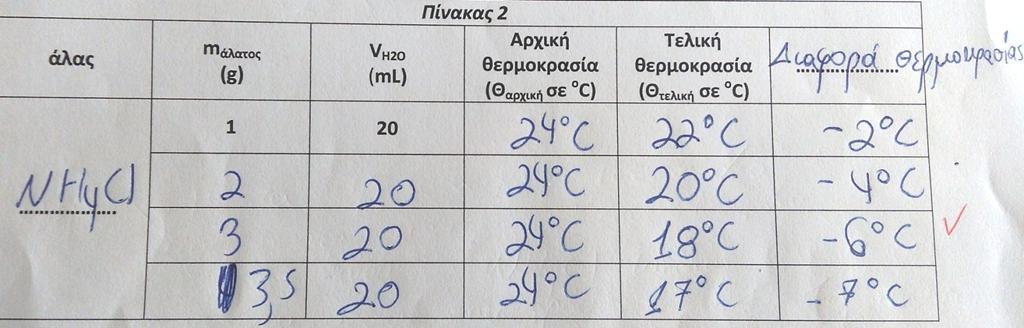 Πίνακας 2
άλας | mάλατος (g) | VH2O (mL) | Αρχική θερμοκρασία (Θαρχική σε °C) | Τελική θερμοκρασία (Θτελική σε °C) | Διαφορά θερμοκρασίας
NH4Cl | 1 | 20 | 24°C | 22°C | -2°C
2 | 20 | 24°C | 20°C | -4°C
3 | 20 | 24°C | 18°C | -6°C
3,5 | 20 | 24°C | 17°C | -7°C